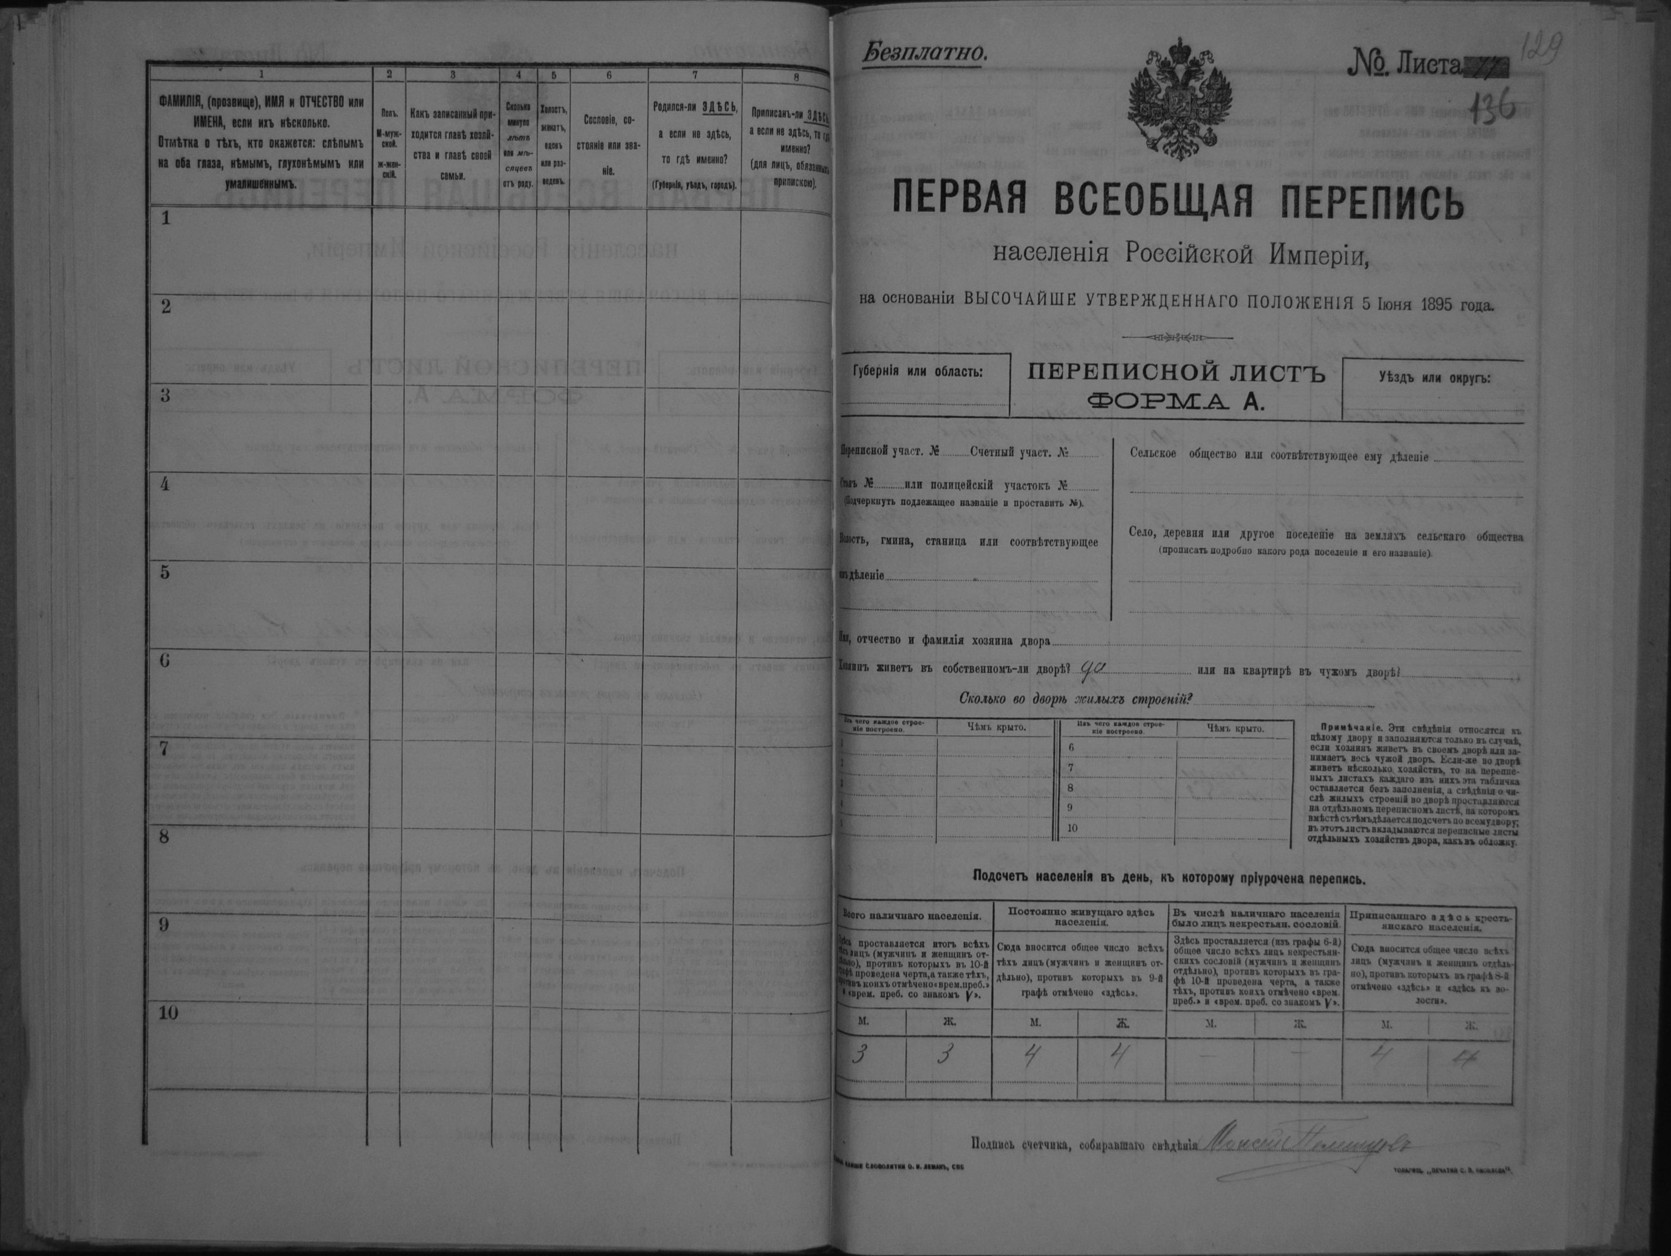 1 2 3 4 5 6 7 8
ФАМИЛІЯ, (прозвище), ИМЯ и ОТЧЕСТВО или
ИМЕНА, если ихъ нѣсколько.
Отмѣтка о тѣхъ, кто окажется: слѣпымъ
на оба глаза, нѣмымъ, глухонѣмымъ или
умалишеннымъ.
Полъ.
М-муж-
ской.
Ж-жен-
скій.
Какъ записанный при-
ходится главѣ хозяй-
ства и главѣ своей
семьи.
Сколько
минуло
лѣтъ
или мѣ-
сяцевъ
отъ роду.
Холостъ,
женатъ,
вдовъ
или раз-
веденъ.
Сословіе, со-
стояніе или зва-
ніе.
Родился-ли ЗДѢСЬ,
а если не здѣсь,
то гдѣ именно?
(Губернія, уѣздъ, городъ).
Приписанъ-ли ЗДѢСЬ,
а если не здѣсь, то гдѣ
именно?
(для лицъ, обязанныхъ
припискою).
1
2
3
4
5
6
7
8
9
10
Безплатно.
№. Листа 129
136
ПЕРВАЯ ВСЕОБЩАЯ ПЕРЕПИСЬ
населенія Россійской Имперіи,
на основаніи ВЫСОЧАЙШЕ УТВЕРЖДЕННАГО ПОЛОЖЕНІЯ 5 Іюня 1895 года.
Губернія или область:
ПЕРЕПИСНОЙ ЛИСТЪ
ФОРМА А.
Уѣздъ или округъ:
Переписной участ. № Счетный участ. №
Станъ № или полицейскій участокъ №
(Подчеркнуть подлежащее названіе и проставить №).
Волость, гмина, станица или соотвѣтствующее
имъ дѣленіе
Сельское общество или соотвѣтствующее ему дѣленіе
Село, деревня или другое поселеніе на земляхъ сельскаго общества
(прописать подробно какого рода поселеніе и его названіе).
Имя, отчество и фамилія хозяина двора
Хозяинъ живетъ въ собственномъ-ли дворѣ? да или на квартирѣ въ чужомъ дворѣ?
Сколько во дворѣ жилыхъ строеній?
Изъ чего каждое строе-
ніе построено.
Чѣмъ крыто.
Изъ чего каждое строе-
ніе построено.
Чѣмъ крыто.
1
2
3
4
5
6
7
8
9
10
Примѣчаніе. Эти свѣдѣнія относятся къ
цѣлому двору и заполняются только въ случаѣ,
если хозяинъ живетъ въ своемъ дворѣ или за-
нимаетъ весь чужой дворъ. Если-же во дворѣ
живетъ нѣсколько хозяйствъ, то на перепис-
ныхъ листахъ каждаго изъ нихъ эта табличка
оставляется безъ заполненія, а свѣдѣнія о чи-
слѣ жилыхъ строеній во дворѣ проставляются
на отдѣльномъ переписномъ листѣ, на которомъ
вмѣстѣ съ тѣмъ дѣлается подсчетъ по всему двору;
въ этотъ листъ вкладываются переписные листы
отдѣльныхъ хозяйствъ двора, какъ въ обложку.
Подсчетъ населенія въ день, къ которому пріурочена перепись.
Всего наличнаго населенія.
Здѣсь проставляется итогъ всѣхъ
лицъ (мужчинъ и женщинъ от-
дѣльно), противъ которыхъ въ 10-й
графѣ проведена черта, а также тѣхъ,
противъ коихъ отмѣчено «врем. преб.»
и «врем. преб. со знакомъ V».
Постоянно живущаго здѣсь
населенія.
Сюда вносится общее число всѣхъ
тѣхъ лицъ (мужчинъ и женщинъ от-
дѣльно), противъ которыхъ въ 9-й
графѣ отмѣчено «здѣсь».
Въ числѣ наличнаго населенія
было лицъ некрестьян. сословій.
Здѣсь проставляется (изъ графы 6-й)
общее число всѣхъ лицъ некрестьян-
скихъ сословій (мужчинъ и женщинъ
отдѣльно), противъ которыхъ въ гра-
фѣ 10-й проведена черта, а также
тѣхъ, противъ коихъ отмѣчено «врем.
преб.» и «врем. преб. со знакомъ V».
Приписаннаго здѣсь кресть-
янскаго населенія.
Сюда вносится общее число всѣхъ
лицъ (мужчинъ и женщинъ отдѣль-
но), противъ которыхъ въ графѣ 8-й
отмѣчено «здѣсь» и «здѣсь въ во-
лости».
М. Ж. М. Ж. М. Ж. М. Ж.
3 3 4 4 — — 4 4
Подпись счетчика, собиравшаго свѣдѣнія